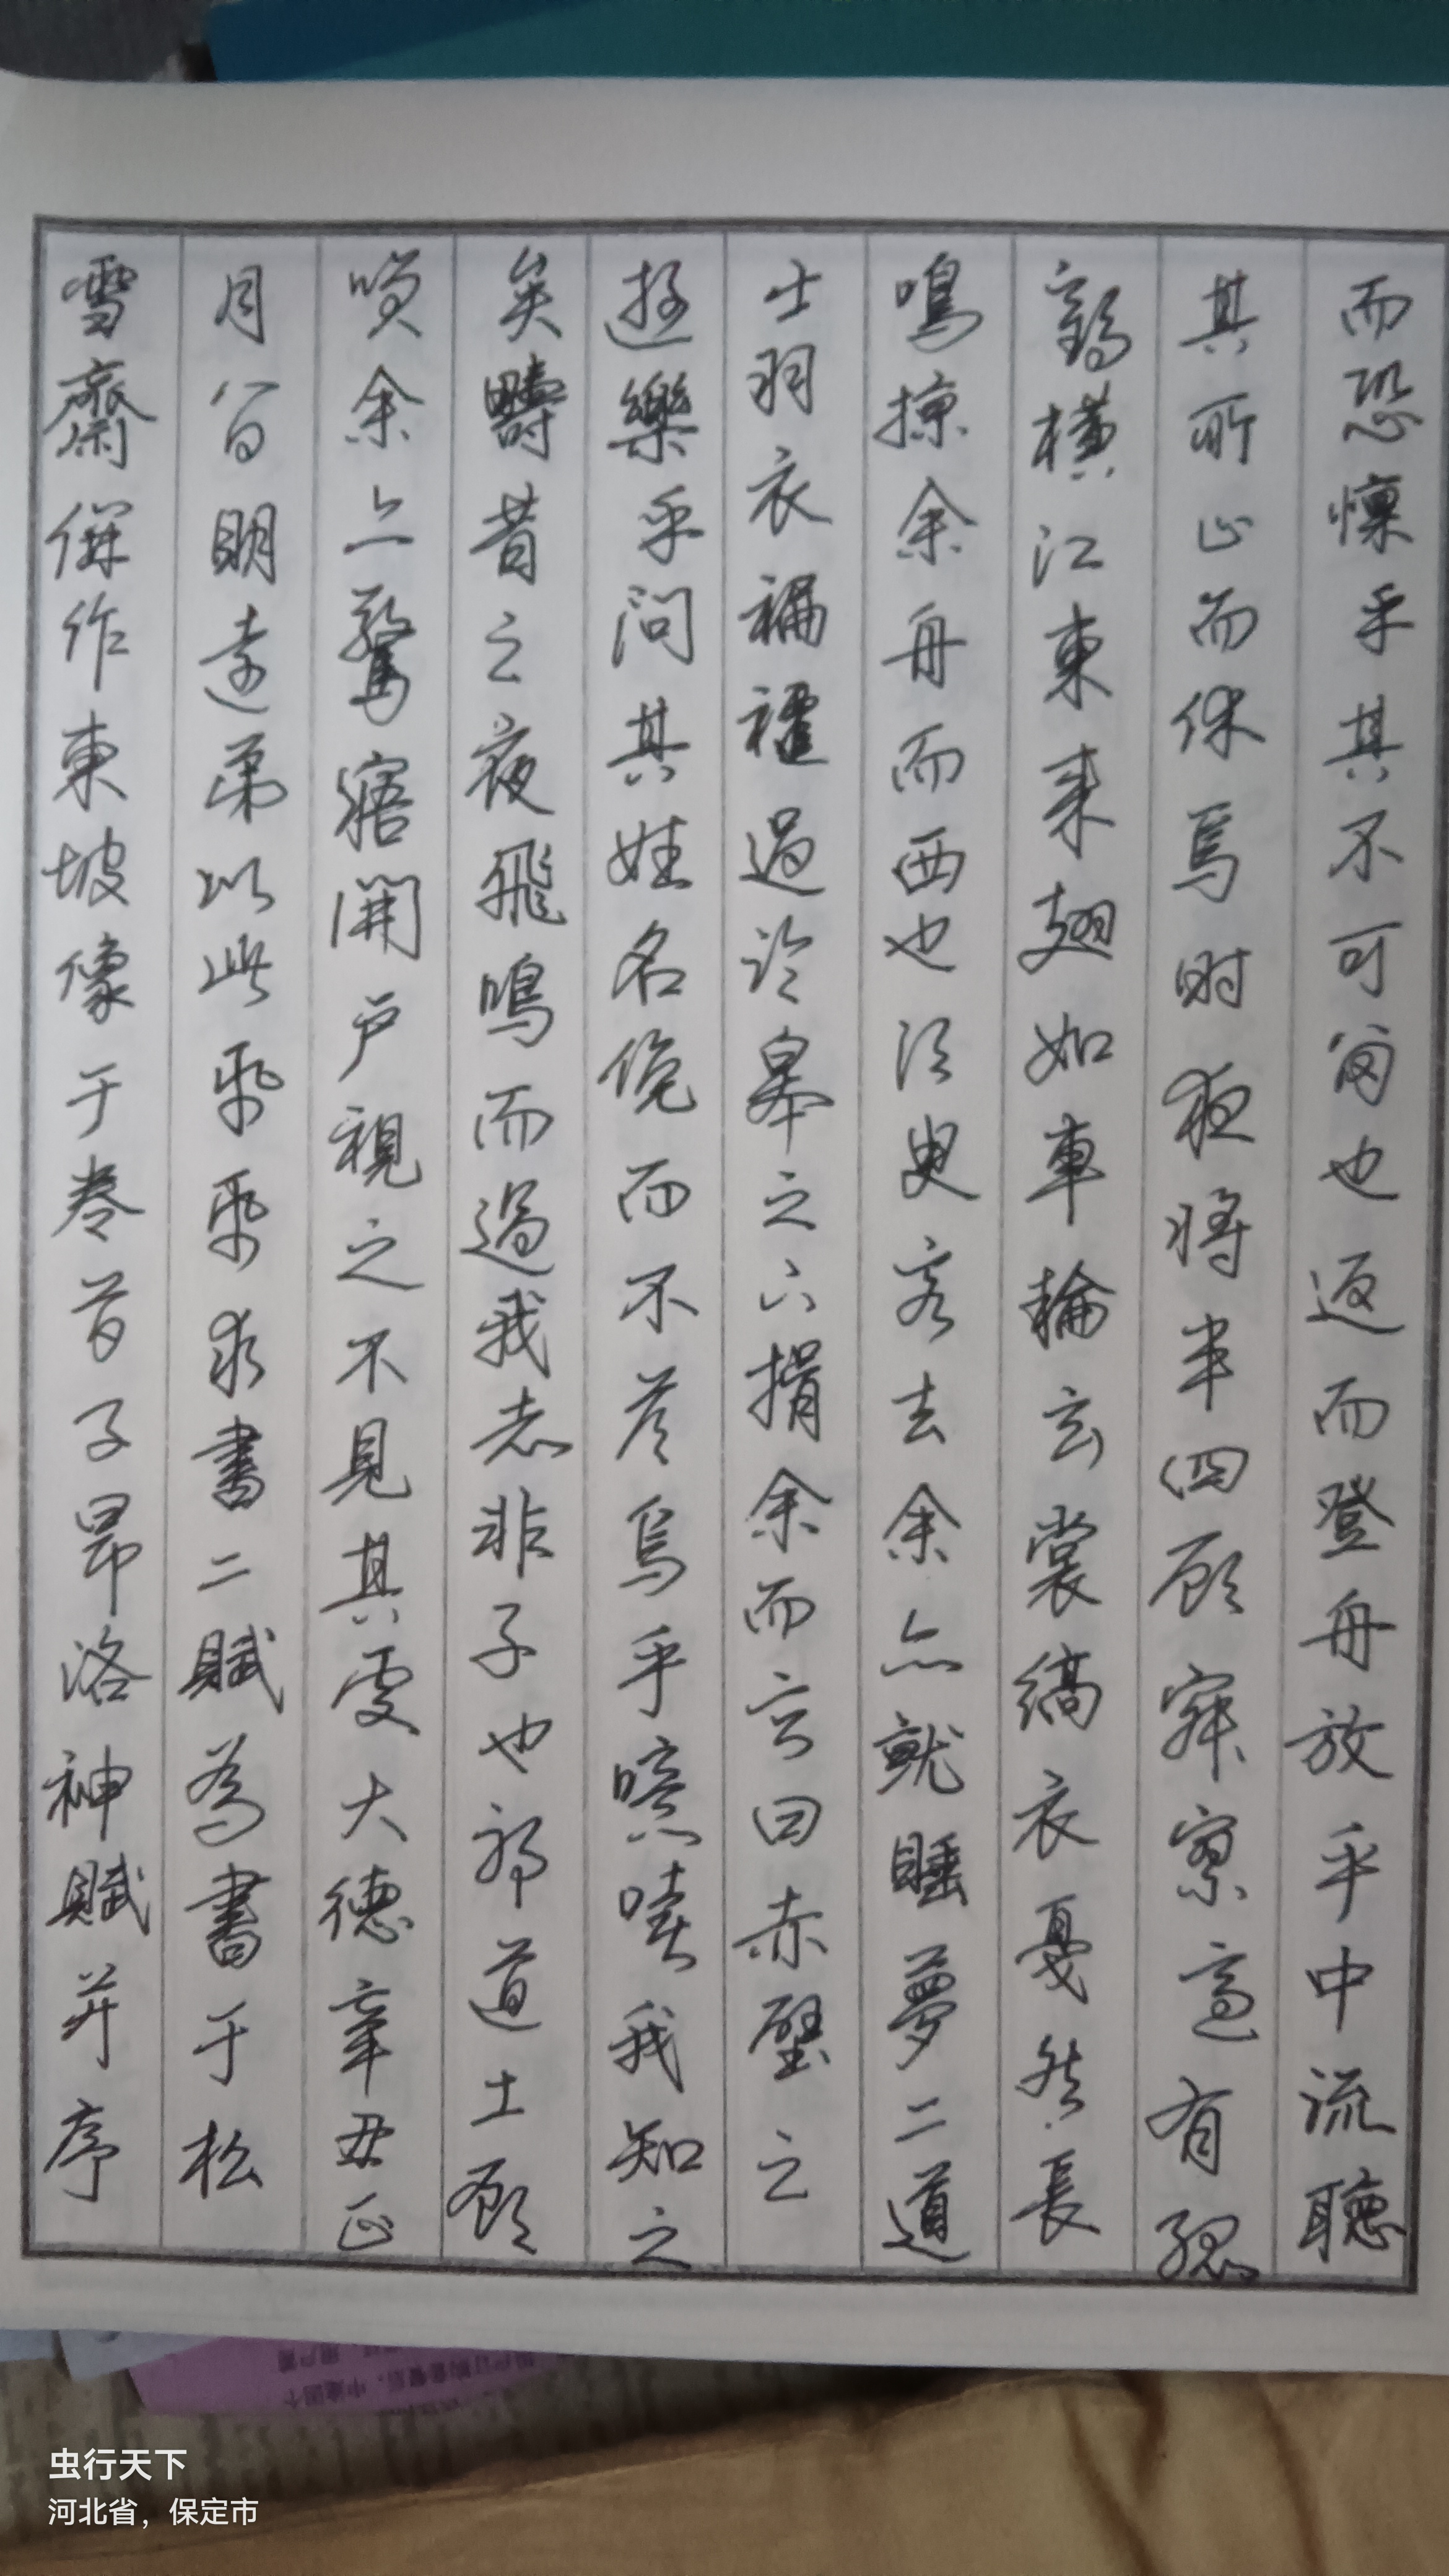 而恐懍乎其不可留也返而登舟放乎中流聽
其所止而休焉時夜將半四顧寂寥適有孤
鶴橫江東來翅如車輪玄裳縞衣戛然長
鳴掠余舟而西也須臾客去余亦就睡夢二道
士羽衣褊襹過臨皋之下揖余而言曰赤壁之
遊樂乎問其姓名俛而不答嗚乎噫嘻我知之
矣疇昔之夜飛鳴而過我者非子也邪道士顧
笑余亦驚寤開戶視之不見其處大德辛丑正
月八日明遠弟以此紙求書二賦為書于松
雪齋併作東坡像于卷首子昂洛神賦并序
虫行天下
河北省，保定市